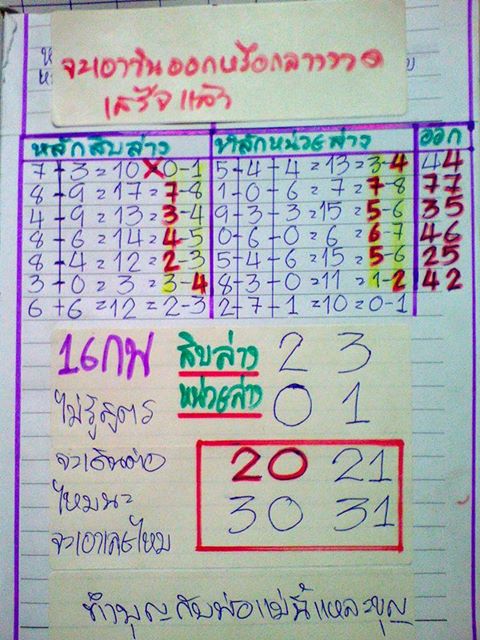 จะเอาวันออกหรือกลางงวด
เสร็จแล้ว
หลักสิบล่าง หลักหน่วยล่าง ออก
7+3=10 X 0-1 5+4+4=13=3-4 44
8+9=17=7-8 1+0+6=7=7-8 77
4+9=13=3-4 9+3+3=15=5-6 35
8+6=14=4-5 0+6+0=6=6-7 46
8+4=12=2-3 5+4+6=15=5-6 25
3+0=3=3-4 8+3+0=11=1-2 42
6+6=12=2-3 2+7+1=10=0-1
16กพ สิบล่าง 2 3
ไม่รู้สูตร หน่วยล่าง 0 1
จะเดินต่อ 20 21
ไหมนะ 30 31
จะเอาเลขไหม
ทำบุญกับพ่อแม่นี้แหละบุญ